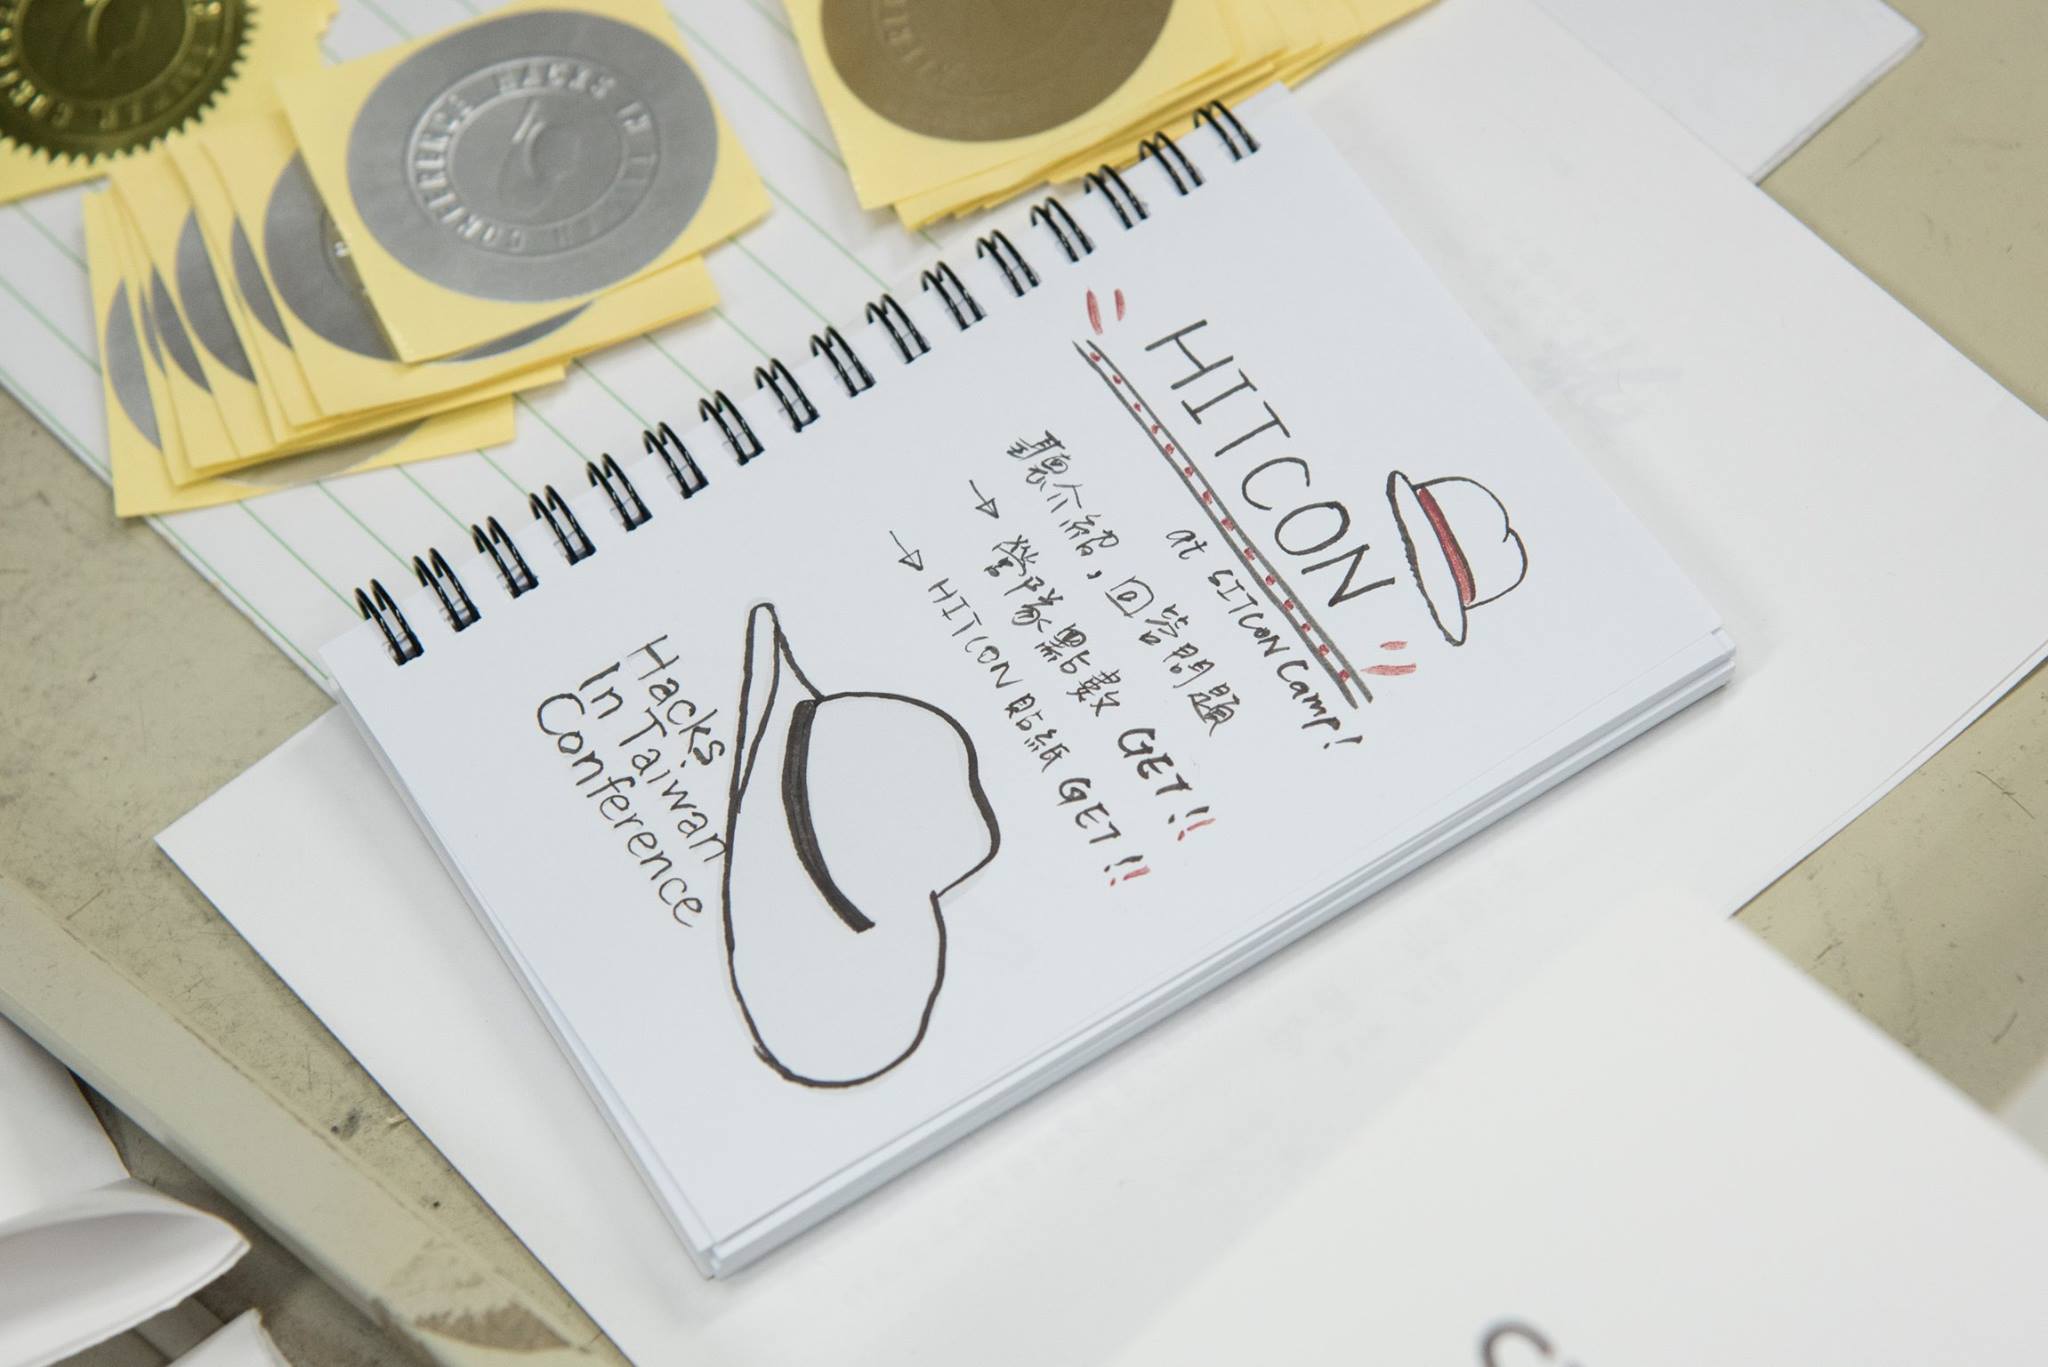 HITCON
at SITCON Camp!
聽介紹，回答問題
→ 營隊點數 GET!!
→ HITCON 貼紙 GET!!
Hacks
In Taiwan
Conference
HACKS IN TAIWAN CONFERENCE